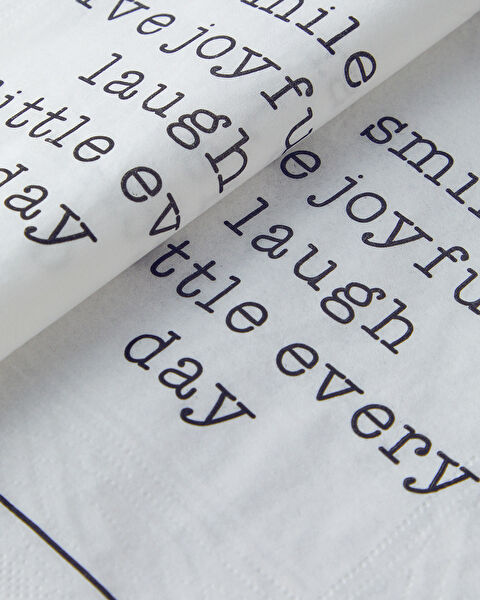 smile
ive joyfu
laugh
ittle ev
day
smil
e joyfu
laugh
ttle every
day